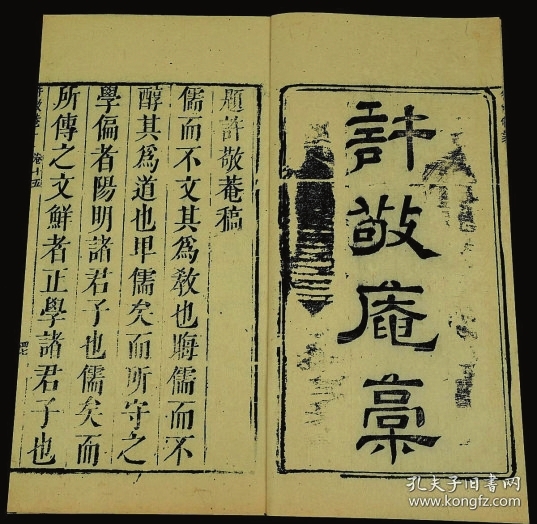 許敬庵稾
題許敬菴稿
儒而不文其為教也晦儒而不
醇其為道也卑儒矣而所守之
學偏者陽明諸君子也儒矣而
所傳之文鮮者正學諸君子也
卷十五
孔夫子旧书网
www.kongfz.com